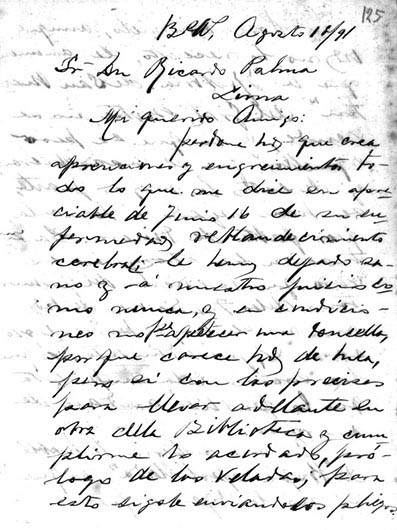 125
Bs As, Agosto 18/91
Sr Dn Ricardo Palma
Lima
Mi querido Amigo:
perdone Ud que crea
aprenciones y engreimientos to-
dos lo que me dice en apre-
ciable de Junio 16 de su en
fermedad, reblandecimiento
cerebral: le hemos dejado sa
no y á nuestro juicio co
mo nunca, y en condicio-
nes no apetecer una doncella,
porque carece Ud de
pero si con las precisas
para llevar adelante su
obra della Biblioteca y cum
plirme lo acordado, pró-
logo de las Veladas, para
esto sigole enviando los pliegos